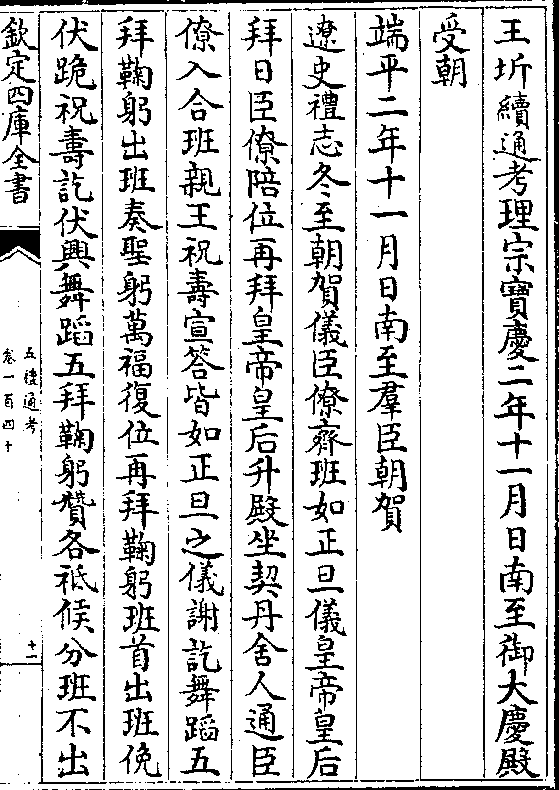 王圻續通考理宗寶慶二年十一月日南至御大慶殿
受朝
端平二年十一月日南至羣臣朝賀
遼史禮志冬至朝賀儀臣僚齊班如正旦儀皇帝皇后
拜日臣僚陪位再拜皇帝皇后升殿坐契丹舍人通臣
僚入合班親王祝壽宣答皆如正旦之儀謝訖舞蹈五
拜鞠躬出班奏聖躬萬福復位再拜鞠躬班首出班俛
伏跪祝壽訖伏興舞蹈五拜鞠躬贊各祗候分班不出
欽定四庫全書
五禮通考
卷一百四十
十一